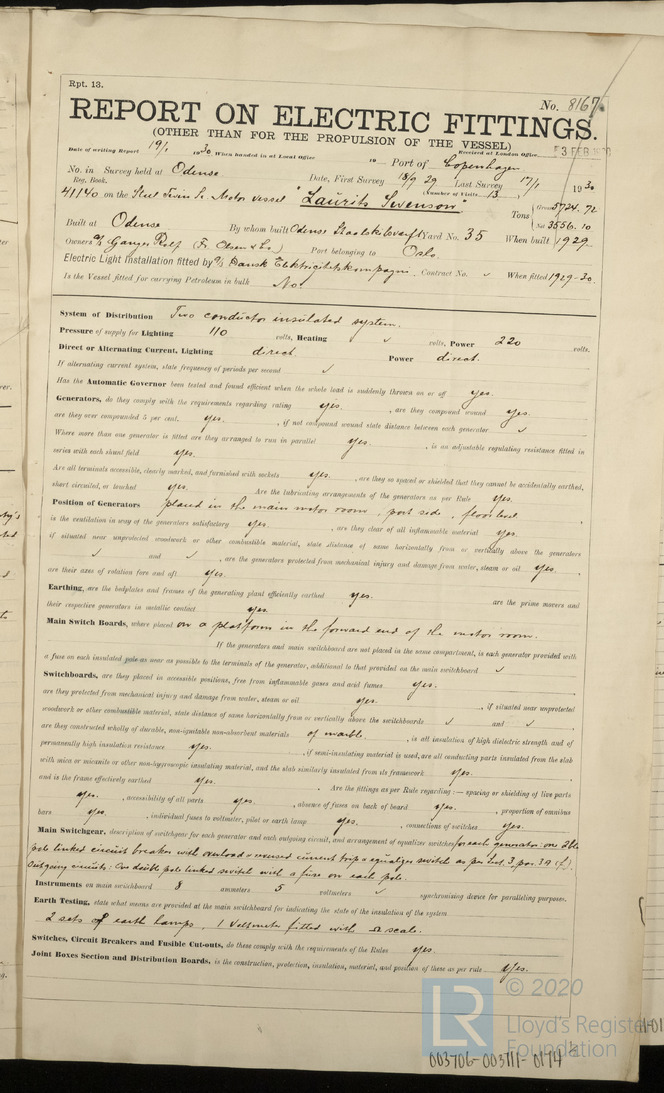 Rpt. 13.
No. 8167
REPORT ON ELECTRIC FITTINGS.
(OTHER THAN FOR THE PROPULSION OF THE VESSEL)
Date of writing Report 19/1 1930 When handed in at Local Office 19 Port of Copenhagen Received at London Office 3 FEB 1930
No. in Survey held at Odense Date, First Survey 18/9 29 Last Survey 17/1 1930
Reg. Book. (Number of Visits 13)
41140 on the Steel Twin Sc. Motor vessel "Laurits Swenson" Tons Gross 5724.72 Net 3556.10
Built at Odense By whom built Odense Staalskibsværft Yard No. 35 When built 1929
Owners A/S Ganger Rolf (Fr. Olsen & Co.) Port belonging to Oslo.
Electric Light Installation fitted by A/S Dansk Elektricitetskompagni Contract No. ✓ When fitted 1929-30.
Is the Vessel fitted for carrying Petroleum in bulk No.
System of Distribution Two conductor insulated system.
Pressure of supply for Lighting 110 volts, Heating ✓ volts, Power 220 volts.
Direct or Alternating Current, Lighting direct Power direct.
If alternating current system, state frequency of periods per second ✓
Has the Automatic Governor been tested and found efficient when the whole load is suddenly thrown on or off yes.
Generators, do they comply with the requirements regarding rating yes. , are they compound wound yes.
are they over compounded 5 per cent. yes. , if not compound wound state distance between each generator ✓
Where more than one generator is fitted are they arranged to run in parallel yes. , is an adjustable regulating resistance fitted in
series with each shunt field yes.
Are all terminals accessible, clearly marked, and furnished with sockets yes. , are they so spaced or shielded that they cannot be accidentally earthed,
short circuited, or touched yes. Are the lubricating arrangements of the generators as per Rule yes.
Position of Generators placed in the main motor room, port side, floor level.
is the ventilation in way of the generators satisfactory yes. , are they clear of all inflammable material yes.
if situated near unprotected woodwork or other combustible material, state distance of same horizontally from or vertically above the generators
✓ and ✓ , are the generators protected from mechanical injury and damage from water, steam or oil yes.
are their axes of rotation fore and aft yes.
Earthing, are the bedplates and frames of the generating plant efficiently earthed yes. are the prime movers and
their respective generators in metallic contact yes.
Main Switch Boards, where placed on a platform in the forward end of the motor room.
If the generators and main switchboard are not placed in the same compartment, is each generator provided with
a fuse on each insulated pole as near as possible to the terminals of the generator, additional to that provided on the main switchboard ✓
Switchboards, are they placed in accessible positions, free from inflammable gases and acid fumes yes.
are they protected from mechanical injury and damage from water, steam or oil yes. , if situated near unprotected
woodwork or other combustible material, state distance of same horizontally from or vertically above the switchboards ✓ and ✓
are they constructed wholly of durable, non-ignitable non-absorbent materials of marble. , is all insulation of high dielectric strength and of
permanently high insulation resistance yes. , if semi-insulating material is used, are all conducting parts insulated from the slab
with mica or micanite or other non-hygroscopic insulating material, and the slab similarly insulated from its framework yes.
and is the frame effectively earthed yes. Are the fittings as per Rule regarding:— spacing or shielding of live parts
yes. , accessibility of all parts yes. , absence of fuses on back of board yes. , proportion of omnibus
bars yes. , individual fuses to voltmeter, pilot or earth lamp yes. , connections of switches yes.
Main Switchgear, description of switchgear for each generator and each outgoing circuit, and arrangement of equalizer switches for each generator: one 2ble
pole linked circuit breaker with overload & reversed current trip & equalizer switch as per Sect. 3, par. 39 (f).
Outgoing circuits: One double pole linked switch with a fuse on each pole.
Instruments on main switchboard 8 ammeters 5 voltmeters ✓ synchronising device for paralleling purposes.
Earth Testing, state what means are provided at the main switchboard for indicating the state of the insulation of the system
2 sets of earth lamps, 1 Voltmeter fitted with Ω scale.
Switches, Circuit Breakers and Fusible Cut-outs, do these comply with the requirements of the Rules yes.
Joint Boxes Section and Distribution Boards, is the construction, protection, insulation, material, and position of these as per rule yes.
LR
© 2020
Lloyd's Register
Foundation
003706-003711-0174